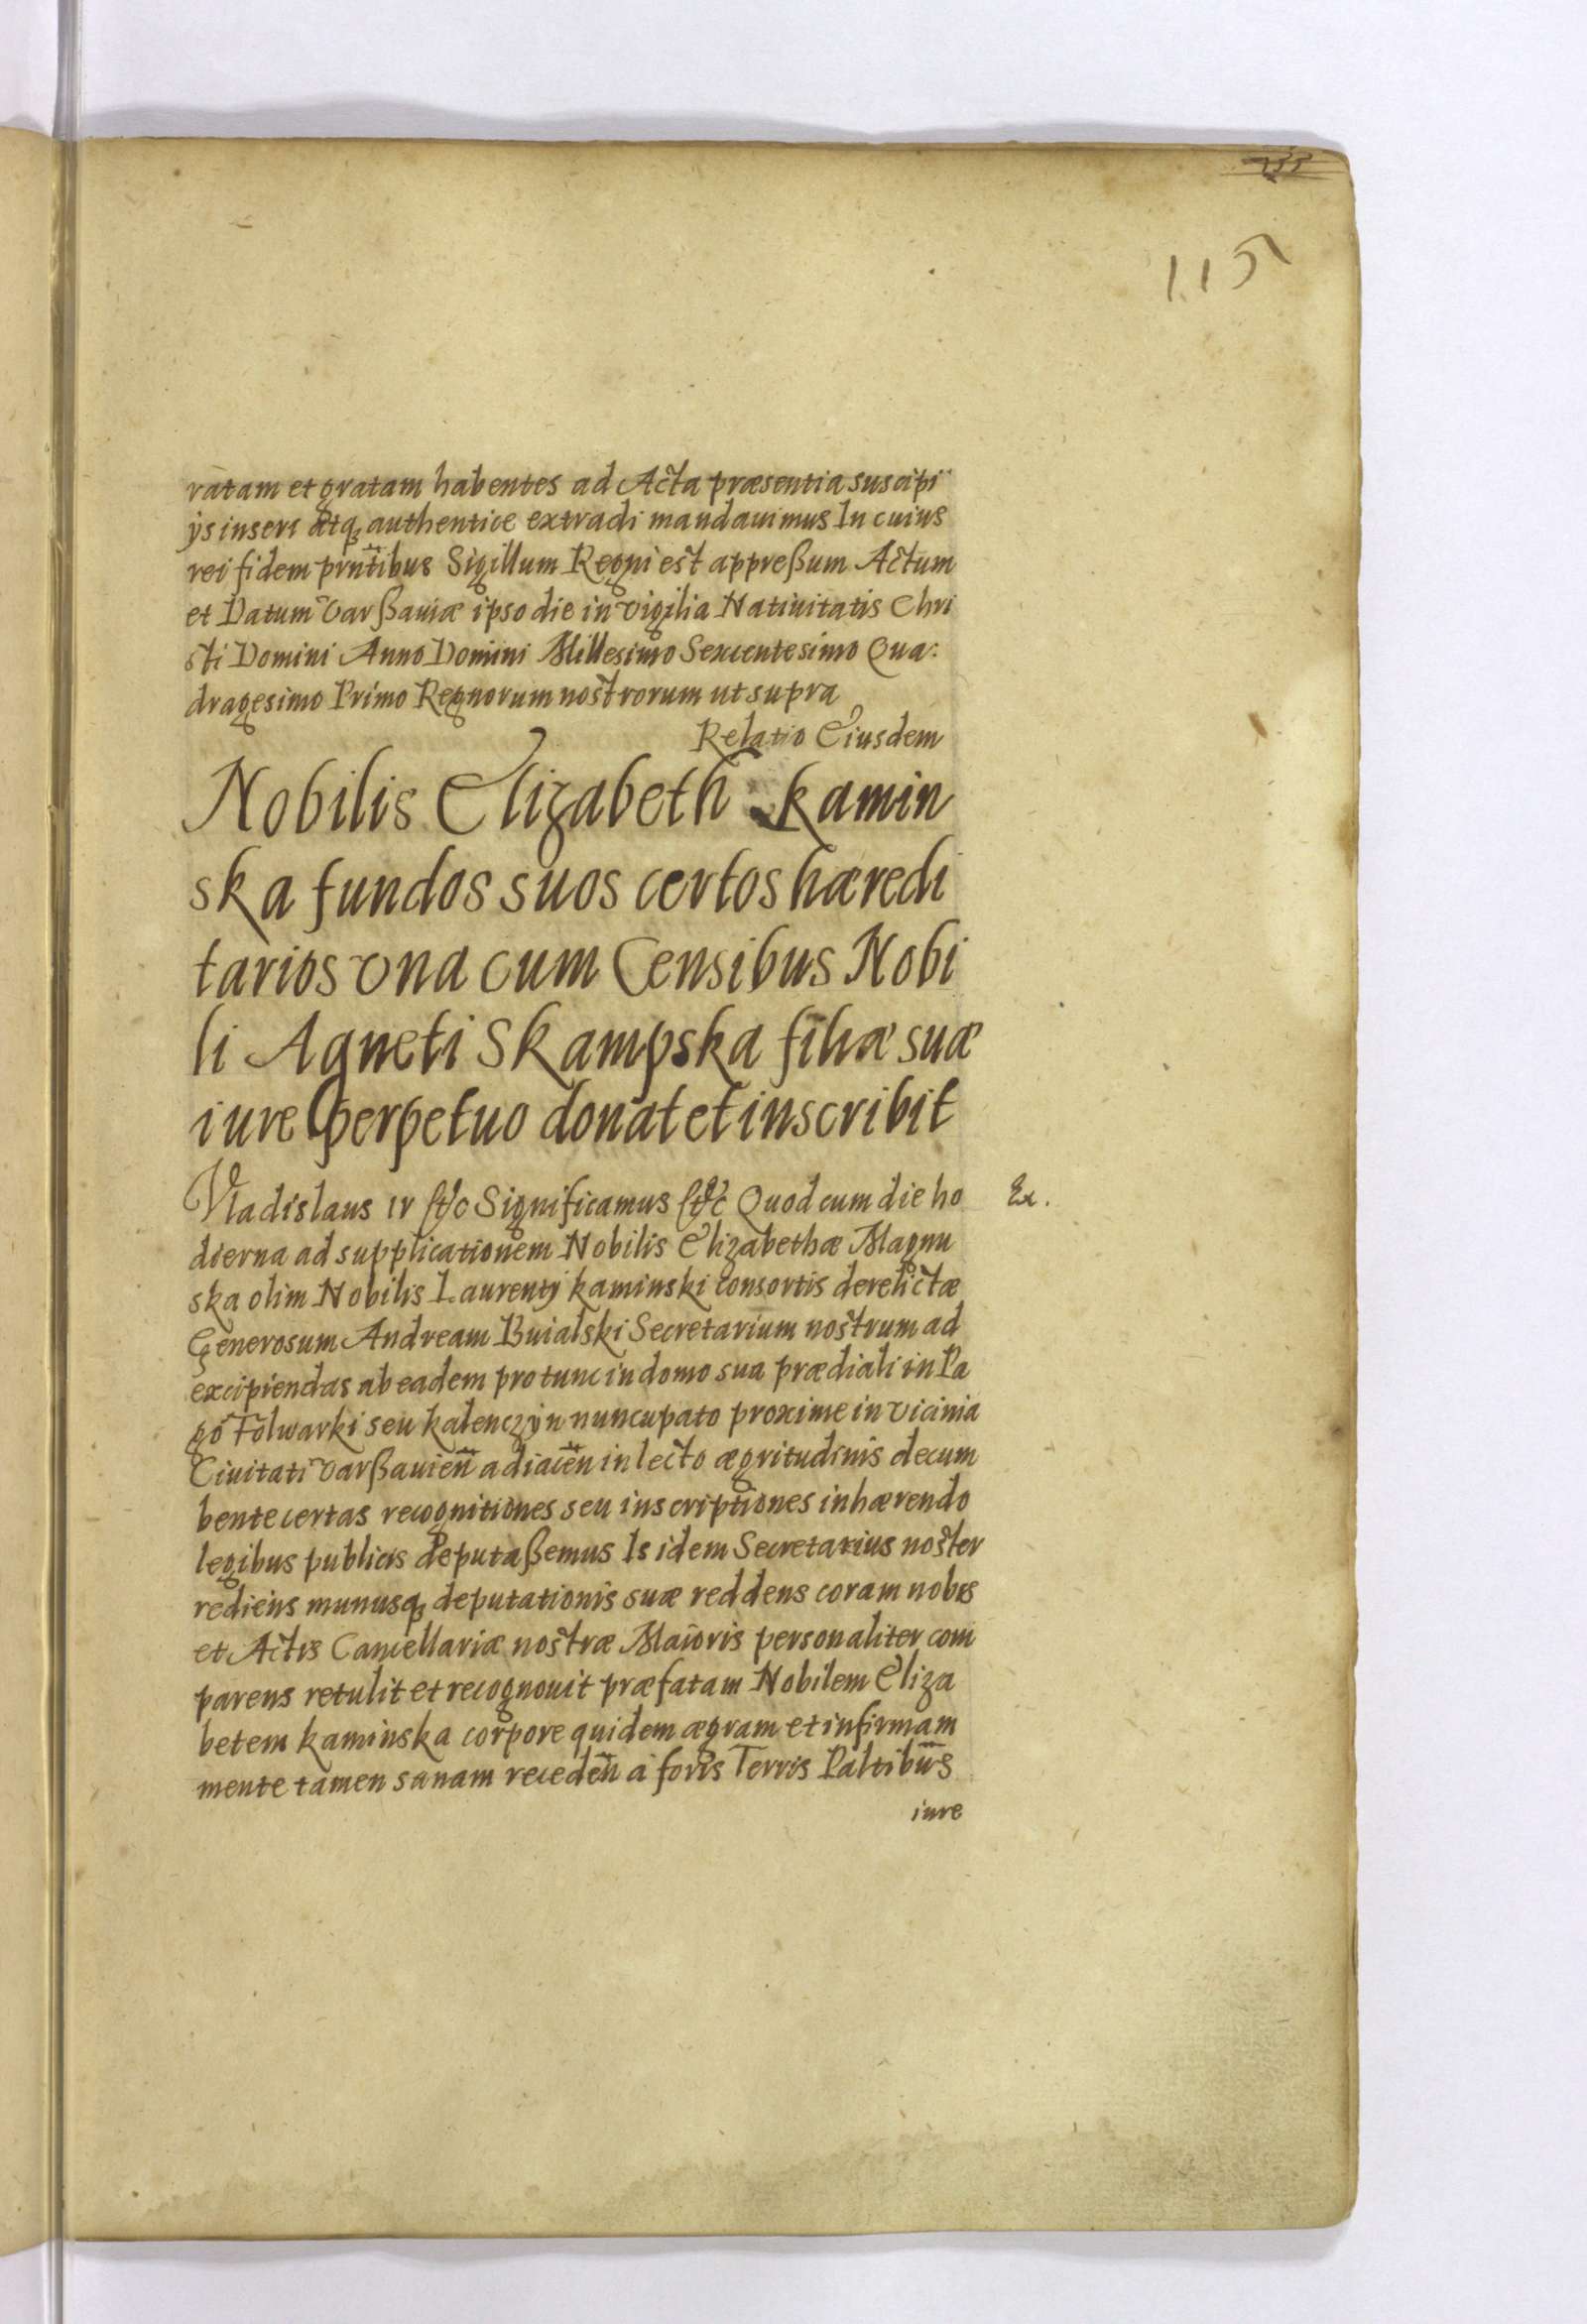 115
ratam et gratam habentes ad Acta præsentia suscipi
ys inseri atq authentice extradi mandauimus In cuius
rei fidem prntibus Sigillum Regni est appreßum Actum
et Datum Varßauiæ ipso die in vigilia Natiuitatis Chri
sti Domini Anno Domini Millesimo Sexcentesimo Qua:
dragesimo Primo Regnorum nostrorum ut supra
Relatio Eiusdem
Nobilis Elizabeth Kamin
ska fundos suos certos hæredi
tarios vna cum Censibus Nobi
li Agneti Skampska filiæ suæ
iure perpetuo donat et inscribit
Vladislaus IV etc Significamus etc Quod cum die ho
Ex.
dierna ad supplicationem Nobilis Elizabethæ Magnu
ska olim Nobilis Laurenty Kaminski consortis derelictæ
Generosum Andream Buialski Secretarium nostrum ad
excipiendas ab eadem pro tunc in domo sua prædiali in Pa
go Folwarki seu Kalenczyn nuncupato proxime in vicinia
Ciuitati Varßauien adiacen in lecto ægritudinis decum
bente certas recognitiones seu inscriptiones inhærendo
legibus publicis deputaßemus Is idem Secretarius noster
rediens munusq deputationis suæ reddens coram nobis
et Actis Cancellariæ nostræ Maioris personaliter com
parens retulit et recognouit præfatam Nobilem Eliza
betem Kaminska corpore quidem ægram et infirmam
mente tamen sanam receden a foris Terris Paltibus
iure